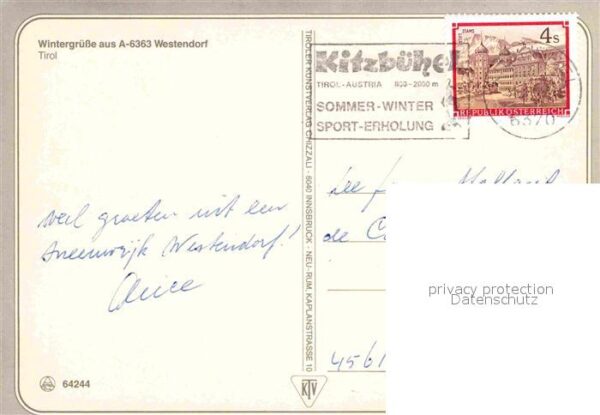 Wintergrüße aus A-6363 Westendorf
Tirol
Kitzbühel
TIROL-AUSTRIA 800-2000 m
SOMMER-WINTER
SPORT-ERHOLUNG
STAMS
4 S
REPUBLIK ÖSTERREICH
6370
TIROLER KUNSTVERLAG CHIZZALI · 6040 INNSBRUCK · NEU-RUM, KAPLANSTRASSE 10
veel groeten uit een
sneeuwrijk Westendorf!
de
4561
privacy protection
Datenschutz
64244
KTV